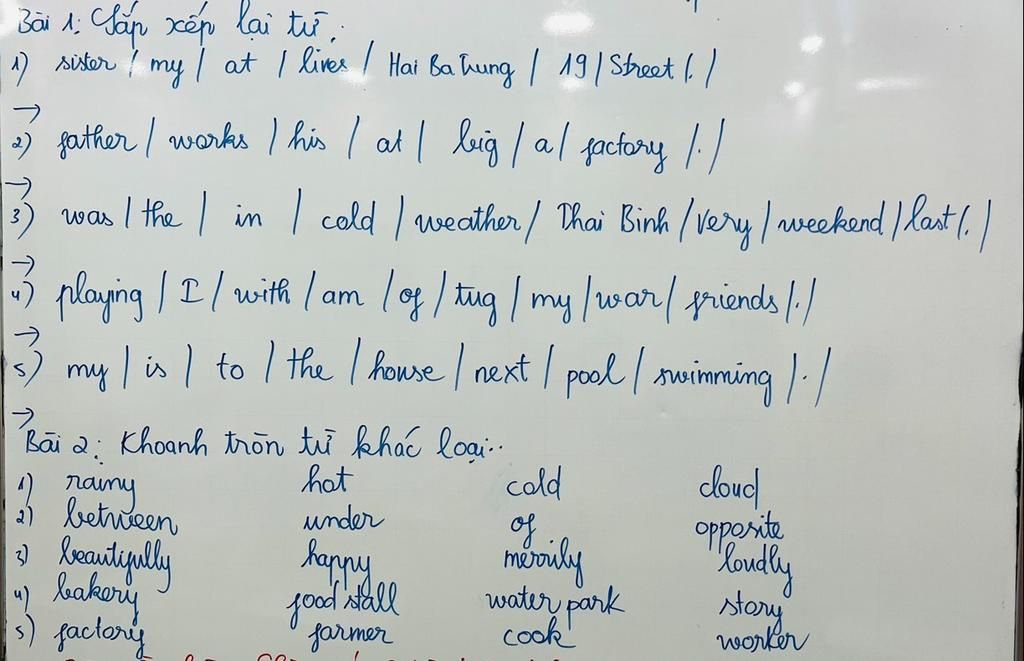 Bài 1: Sắp xếp lại từ.
1) sister / my / at / lives / Hai Ba Trung / 19 / Street / . /
→
2) father / works / his / at / big / a / factory / . /
→
3) was / the / in / cold / weather / Thai Binh / very / weekend / last / . /
→
4) playing / I / with / am / of / tug / my / war / friends / . /
→
5) my / is / to / the / house / next / pool / swimming / . /
→
Bài 2: Khoanh tròn từ khác loại..
1) rainy hot cold cloud
2) between under of opposite
3) beautifully happy merrily loudly
4) bakery food stall water park story
5) factory farmer cook worker